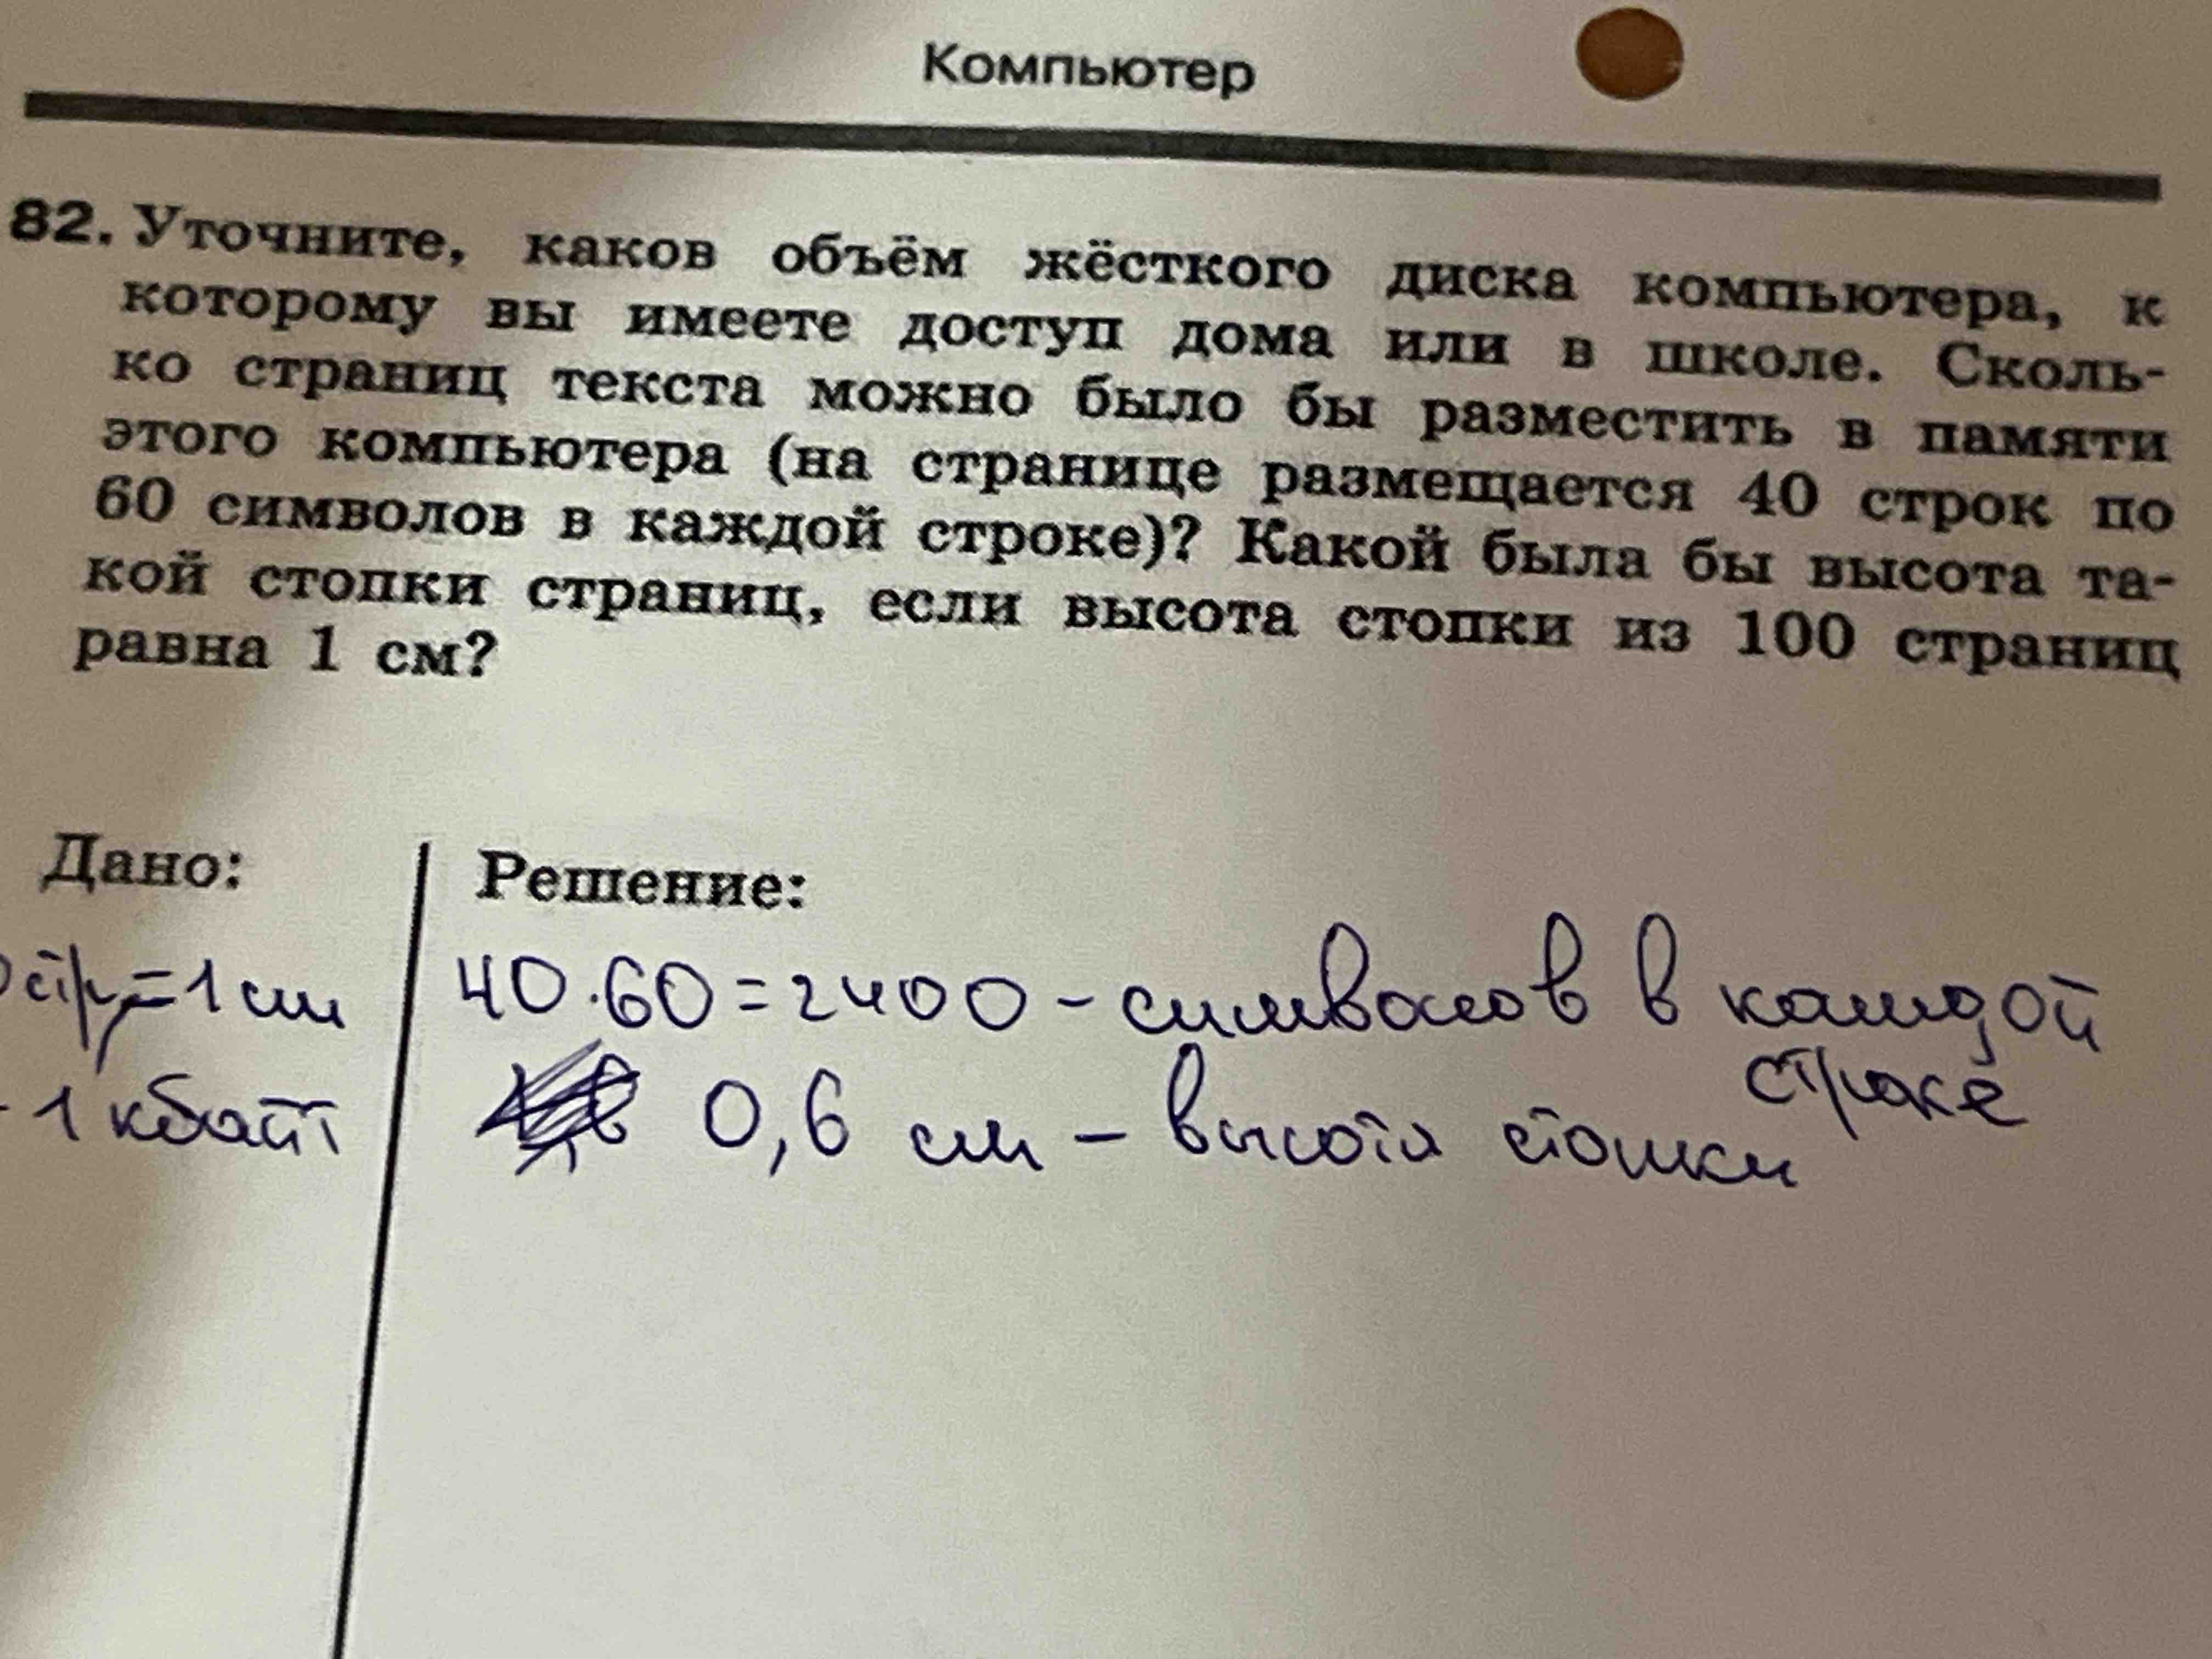 Компьютер
82. Уточните, каков объём жёсткого диска компьютера, к
которому вы имеете доступ дома или в школе. Сколь-
ко страниц текста можно было бы разместить в памяти
этого компьютера (на странице размещается 40 строк по
60 символов в каждой строке)? Какой была бы высота та-
кой стопки страниц, если высота стопки из 100 страниц
равна 1 см?
Дано:
Решение:
стр = 1 см
40·60=2400 - символов в каждой
строке
1 кбайт
0,6 см - высота стопки